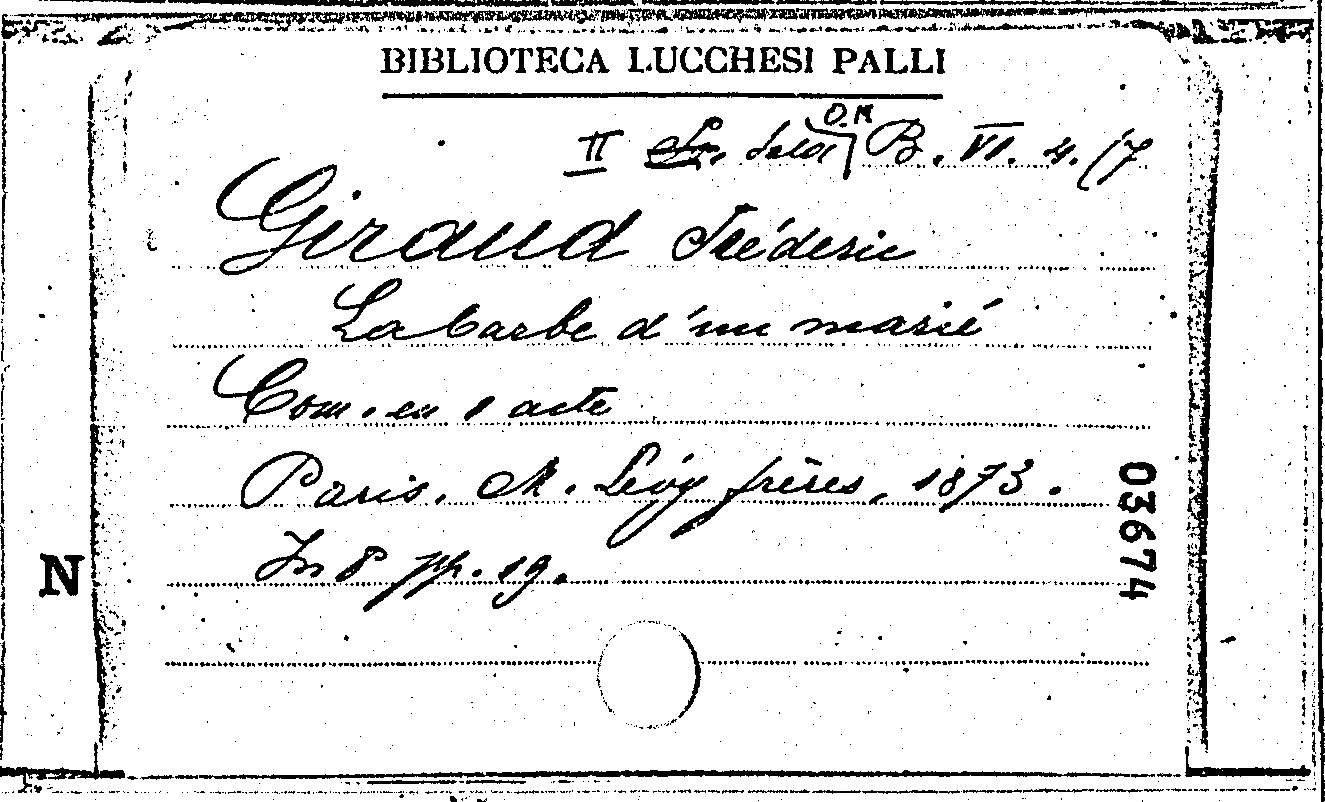 BIBLIOTECA LUCCHESI PALLI
O.M
II sala B. VI. 4. (7
Giraud Fréderic
La barbe d'un marié
Com. en 1 acte
Paris. M. Lévy frères, 1873.
In 8 pp. 19.
03674
N